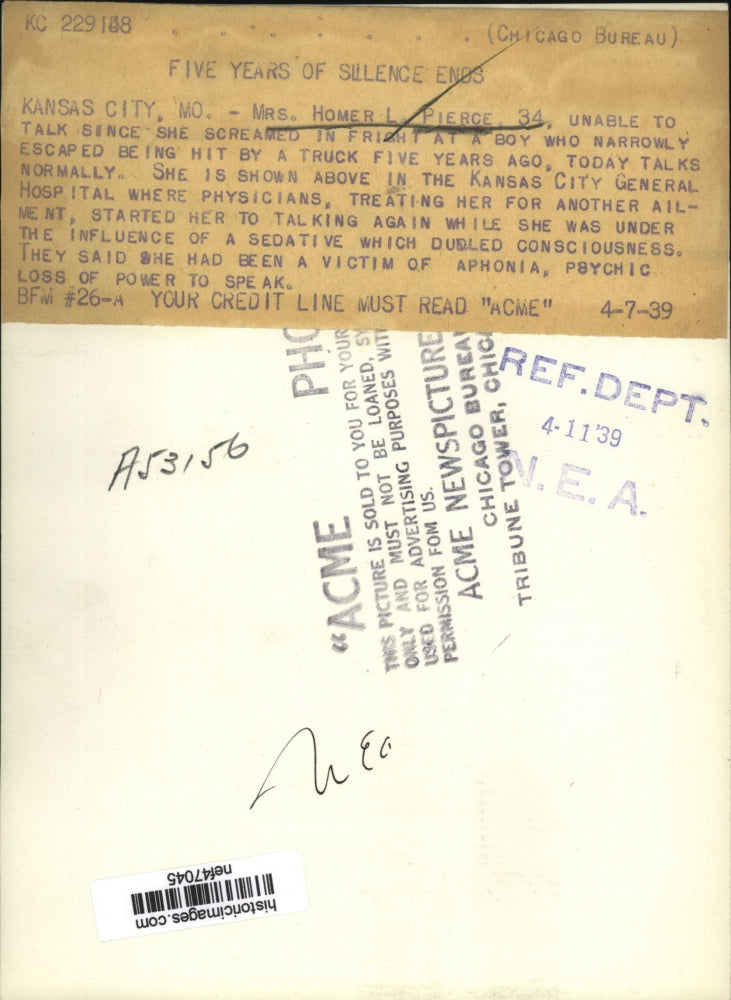 KC 229148 . . . . . . . (CHICAGO BUREAU)
FIVE YEARS OF SILENCE ENDS
KANSAS CITY, MO. - MRS. HOMER L. PIERCE, 34, UNABLE TO
TALK SINCE SHE SCREAMED IN FRIGHT AT A BOY WHO NARROWLY
ESCAPED BEING HIT BY A TRUCK FIVE YEARS AGO, TODAY TALKS
NORMALLY. SHE IS SHOWN ABOVE IN THE KANSAS CITY GENERAL
HOSPITAL WHERE PHYSICIANS, TREATING HER FOR ANOTHER AIL-
MENT, STARTED HER TO TALKING AGAIN WHILE SHE WAS UNDER
THE INFLUENCE OF A SEDATIVE WHICH DUBLED CONSCIOUSNESS.
THEY SAID SHE HAD BEEN A VICTIM OF APHONIA, PSYCHIC
LOSS OF POWER TO SPEAK.
BFM #26-A YOUR CREDIT LINE MUST READ "ACME" 4-7-39
"ACME PHO
THIS PICTURE IS SOLD TO YOU FOR YOUR
ONLY AND MUST NOT BE LOANED, SY
USED FOR ADVERTISING PURPOSES WIT
PERMISSION FOM US.
ACME NEWSPICTURE
CHICAGO BUREA
TRIBUNE TOWER, CHIC
REF. DEPT.
4-11'39
N.E.A.
A53156
historicimages.com
nef47045